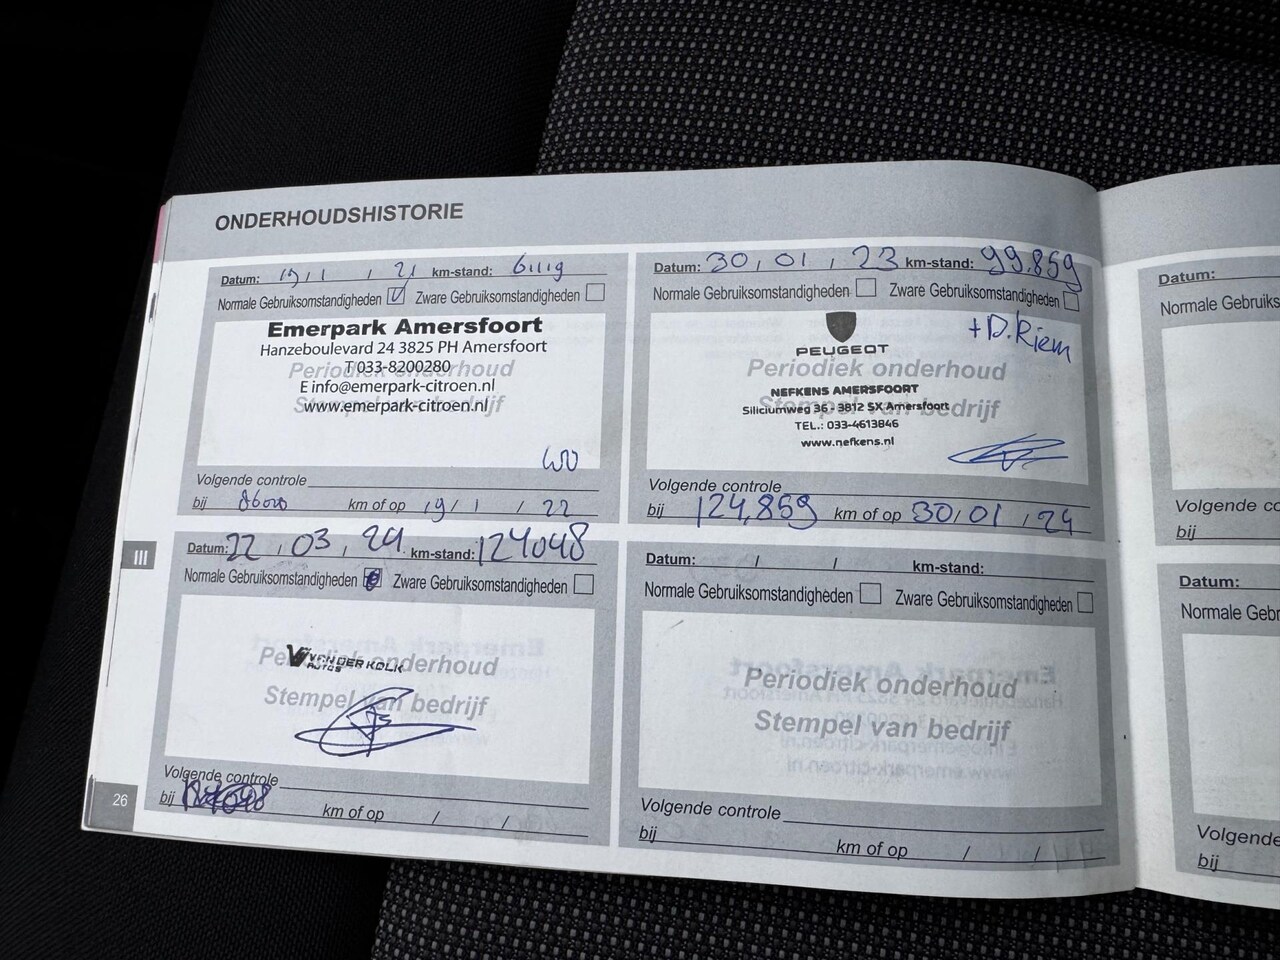 ONDERHOUDSHISTORIE
Datum: 19 / 1 / 21 km-stand: 61119
Normale Gebruiksomstandigheden Zware Gebruiksomstandigheden
Emerpark Amersfoort
Hanzeboulevard 24 3825 PH Amersfoort
T 033-8200280
Periodiek onderhoud
E info@emerpark-citroen.nl
www.emerpark-citroen.nl
Stempel van bedrijf
Volgende controle
bij 86000 km of op 19 / 1 / 22
Datum: 30 / 01 / 23 km-stand: 99.859
Normale Gebruiksomstandigheden Zware Gebruiksomstandigheden
+ D.Riem
PEUGEOT
Periodiek onderhoud
NEFKENS AMERSFOORT
Siliciumweg 36 - 3812 SX Amersfoort
Stempel van bedrijf
TEL.: 033-4613846
www.nefkens.nl
Volgende controle
bij 124,859 km of op 30 / 01 / 24
III
Datum: 22 / 03 / 24 km-stand: 124048
Normale Gebruiksomstandigheden Zware Gebruiksomstandigheden
VAN DER KOLK
AUTOS
Periodiek onderhoud
Stempel van bedrijf
Volgende controle
bij km of op / /
Datum: / / km-stand:
Normale Gebruiksomstandigheden Zware Gebruiksomstandigheden
Periodiek onderhoud
Stempel van bedrijf
Volgende controle
bij km of op / /
26
Datum:
Normale Gebruiks
Volgende co
bij
Datum:
Normale Gebr
Volgende
bij